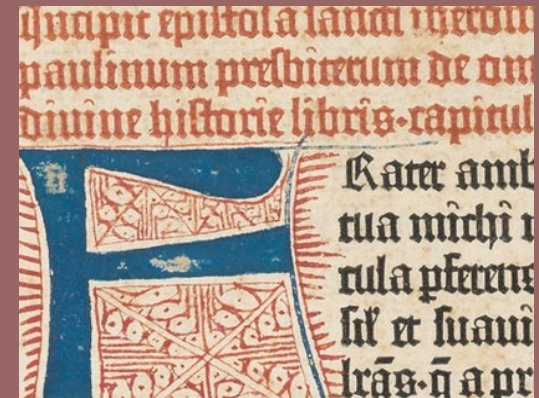 Incipit epistola sancti iheron
paulinum presbiterum de om
divine historie libris·capitul
F
Rater amb
tua michi
tula pferens
sil et suaui
lrās·q̄ a pr